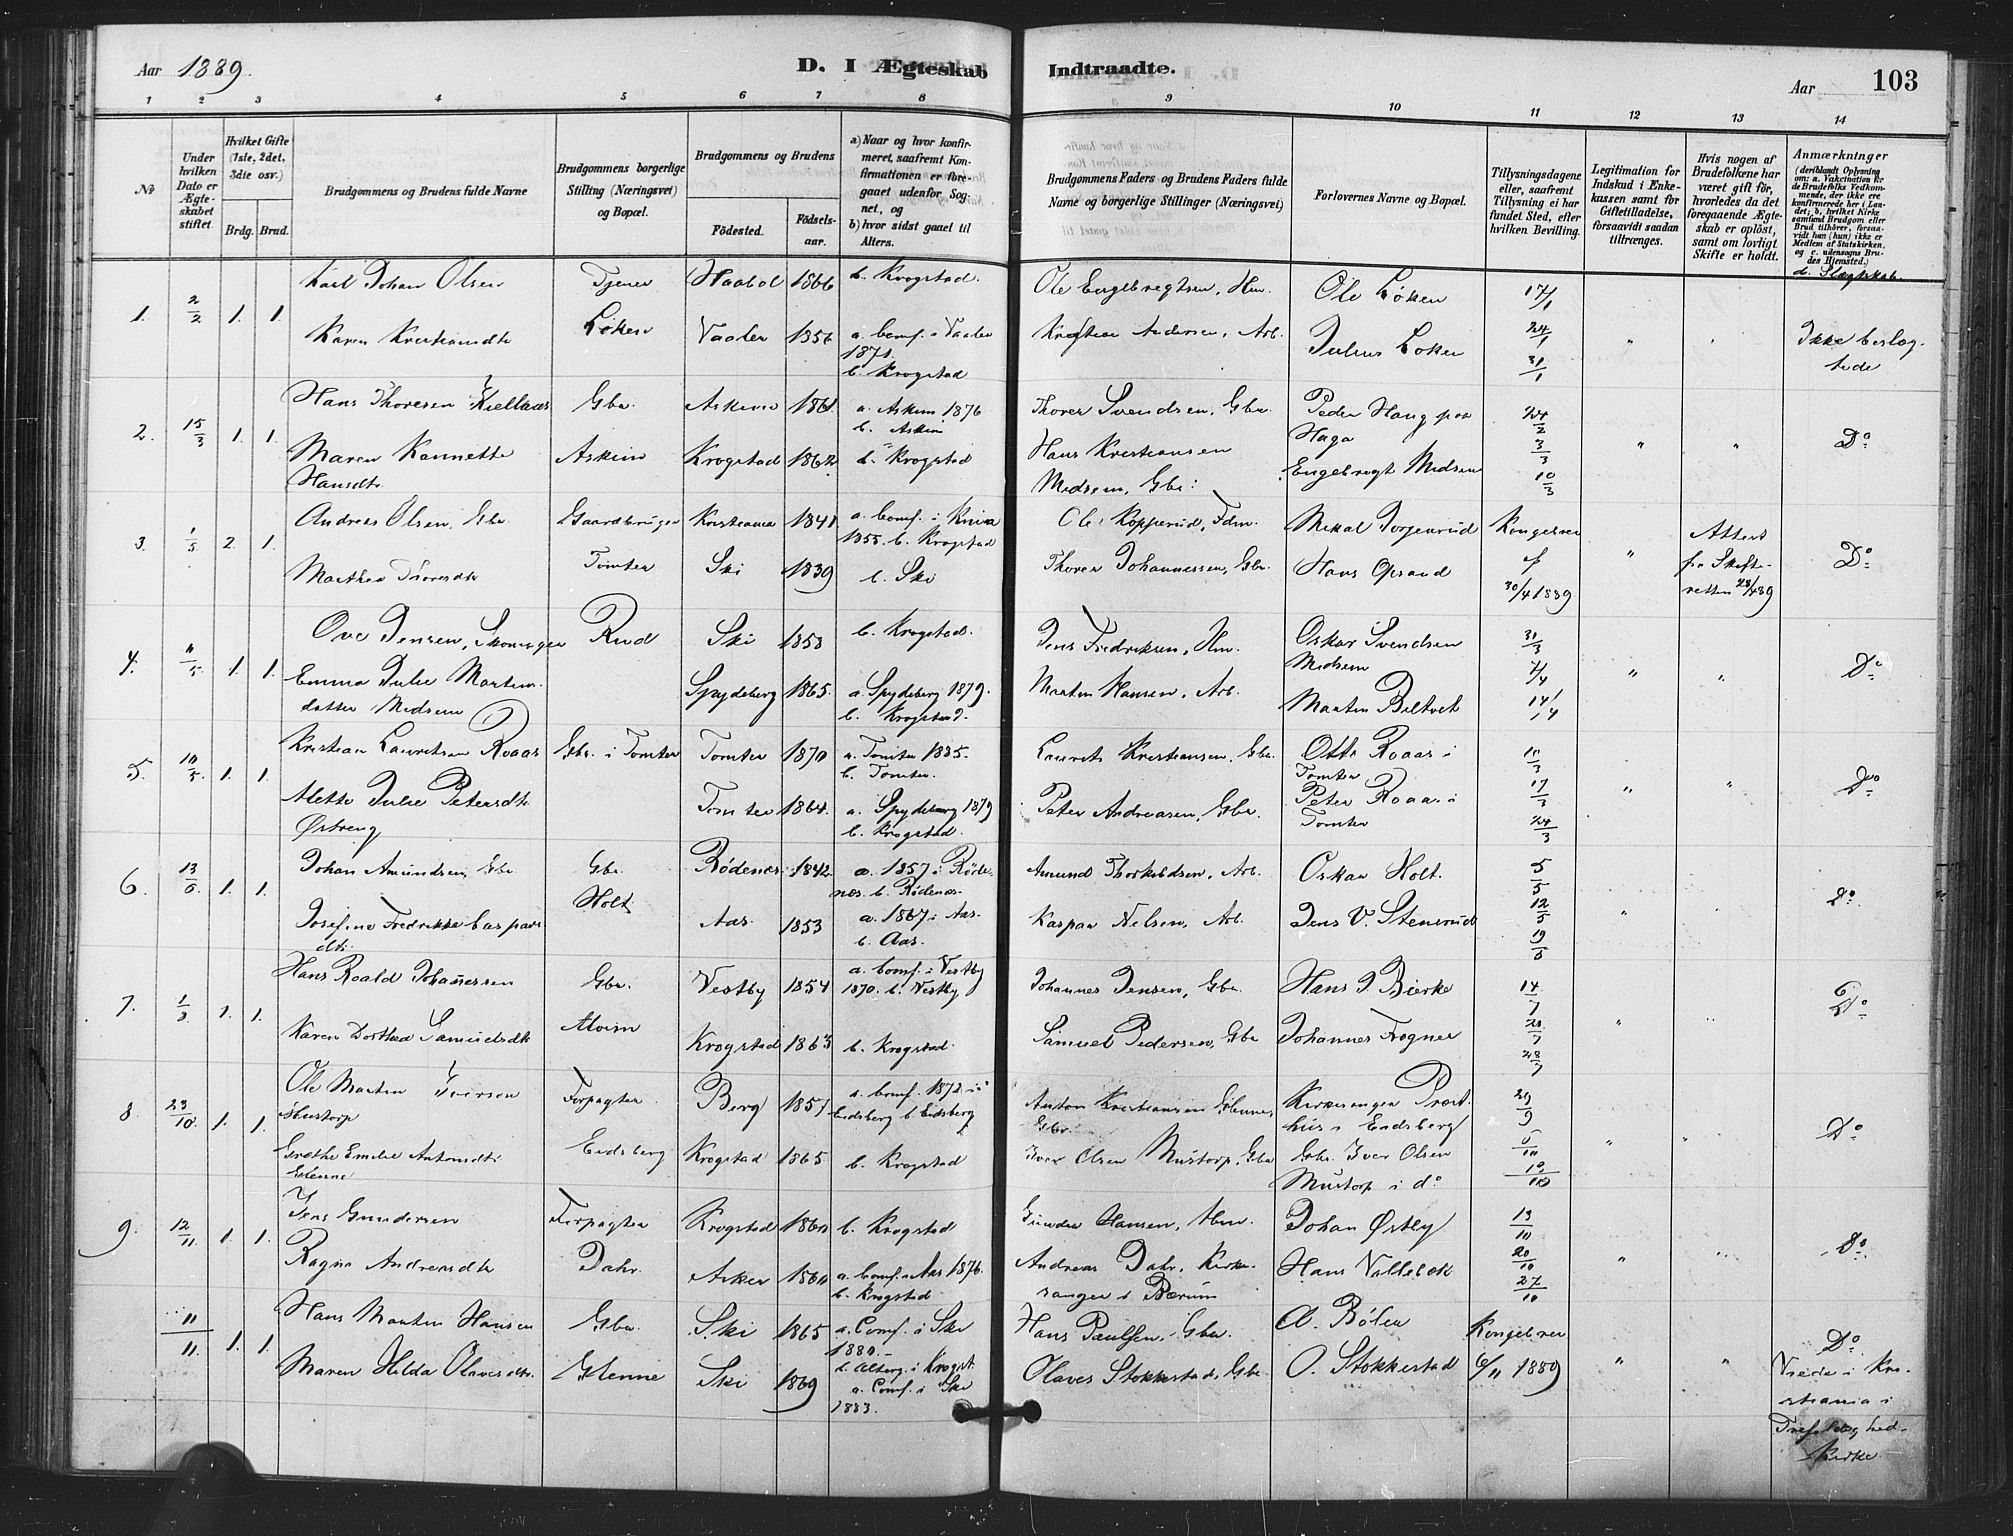 Aar 1889.
D. I Ægteskab
Indtraadte.
Aar
103
1 2 3 4 5 6 7 8
9 10 11 12 13 14
No
Under hvilken Dato er Ægteskabet stiftet.
Hvilket Gifte (1ste, 2det, 3die osv.)
Brdg. Brud.
Brudgommens og Brudens fulde Navne
Brudgommens borgerlige Stilling (Næringsvei) og Bopæl.
Brudgommens og Brudens
Fødested.
Fødselsaar.
a) Naar og hvor konfirmeret, saafremt Konfirmationen er foregaaet udenfor Sognet, og
b) hvor sidst gaaet til Alters.
Brudgommens Faders og Brudens Faders fulde Navne og borgerlige Stillinger (Næringsvei)
Forlovernes Navne og Bopæl.
Tillysningsdagene eller, saafremt Tillysning ei har fundet Sted, efter hvilken Bevilling.
Legitimation for Indskud i Enkekassen samt for Giftetilladelse, forsaavidt saadan tiltrænges.
Hvis nogen af Brudefolkene har været gift før, hvorledes da det foregaaende Ægteskab er opløst, samt om lovligt Skifte er holdt.
Anmærkninger
(deriblandt Oplysning om: a. Vakcination for de Brudefolks Vedkommende, der ikke ere konfirmerede her i Landet; b. hvilket Kirkesamfund Brudgom eller Brud tilhører, forsaavidt han (hun) ikke er Medlem af Statskirken, og c. udensogns Brudes Hjemsted.)
d. Slægtskab.
1. 2/2 1. 1. Karl Johan Olsen Tjener Haabøl 1866 b. Krogstad. Ole Engebregtsen, Hm. Ole Løken 17/1
Karen Kristiansdtr Løken Vaaler 1856 a. Conf. i Vaaler 1871. b. Krogstad Kristian Andersen, Arb. Julius Løken 24/1 31/1 " " Ikke beslægtede
2. 15/3 1. 1. Hans Thoresen Kiellaas Gbr. Askim 1861. a. Askim 1876 b. Askim Thorer Svendsen, Gbr. Peder Haug paa Haga 24/2
Maren Kannette Hansdtr. Askim Krogstad 1862 b. Krogstad Hans Kristiansen Midsem, Gbr. Engebregt Midsem 3/3 10/3 " " Do
3. 1/5 2. 1. Andreas Olsen, Gbr. Gaardbruger Kristiania 1841 a. Conf. i 1855. b. Krogstad Ole Kopperud, Fdm. Mikal Kongebrev
Marthea Thoresdtr Tomter Ski 1839 b. Ski Thorer Johannessen, Gbr. Hans Opsand af 30/4 1889 " Attest fra Skifteretten 23/4 89 Do
4. 11/5 1. 1. Ove Jensen, Skomager Rud Ski 1858 b. Krogstad. Jens Fredriksen, Hm. Oskar Svendsen Midsem 31/3
Emma Julie Martinsdatter Midsem Spydeberg 1865. a. Spydeberg 1879. b. Krogstad. Martin Hansen, Arb. Martin Biltvet 7/4 14/4 " " Do
5. 10/5. 1. 1. Kristian Lauritsen Roaas Gbr. i Tomter Tomter 1870 a. Tomter 1885. b. Tomter. Laurits Kristiansen, Gbr. Otto Roaas i Tomter 10/3
Alette Julie Petersdtr Østreng Tomter 1864. a. Spydeberg 1879 b. Krogstad. Peter Andreasen, Gbr. Peter Roaas i Tomter 17/3 24/3 " " Do
6. 13/6. 1. 1. Johan Amundsen, Gbr. Gbr. Rødenes 1842. a. 1857 i Rødenes. b. Rødenes. Amund Thorkildsen, Arb. Oskar Holt. 5/5
Josefine Fredrikke Caspersdtr. Holt Aas. 1853 a. 1867 i Aas. b. Aas. Kaspar Nilsen, Arb. Jens V. Stenrud 12/5 19/5 " " Do.
7. 1/8 1. 1. Hans Roald Johannessen Gbr. Vestby 1854 a. Conf. i Vestby 1870. b. Vestby Johannes Jensen, Gbr. Hans J. Bierke 14/7
Karen Dorthea Samuelsdtr Alvim Krogstad 1863 b. Krogstad. Samuel Pedersen, Gbr Johannes Fogner 28/7 " " Do
8. 23/10. 1. 1. Ole Martin Iversen Mustorp Forpagter Berg 1857 a. Conf. 1872 i Eidsberg b. Eidsberg Anton Kristiansen Glenne, Gbr. Kirkesanger Præsthus i Eidsberg 29/9
Grethe Emilie Antonsdtr Glenne Eidsberg Krogstad 1865 b. Krogstad Iver Olsen Mustorp, Gbr Gbr. Iver Olsen Mustorp i do 6/10 " " Do
9. 12/11. 1. 1. Jens Gundersen Forpagter Krogstad 1860 b. Krogstad Gunder Hansen, Hm. Johan Østby 13/10
Ragna Andreasdtr Dahr. Asker 1860 a. Conf. i Aas 1876. b. Krogstad. Andreas Dahr, Kirkesanger i Bærum Hans Vallebæk 20/10 27/10 " " Do.
11/11. 1. 1. Hans Martin Hansen Gbr. Ski 1865 a. Conf. i Ski 1880. Hans Paulsen, Gbr. A. Bølen Kongebrev
Maren Hilda Olavesdtr. Glenne Ski 1869 b. Alterg. i Krogst. a. Conf. i Ski 1883. Olaves Stokkestad, Gbr. O. Stokkestad 6/11 1889 " " Do
Viede i Kristiania i Trefoldighed Kirke